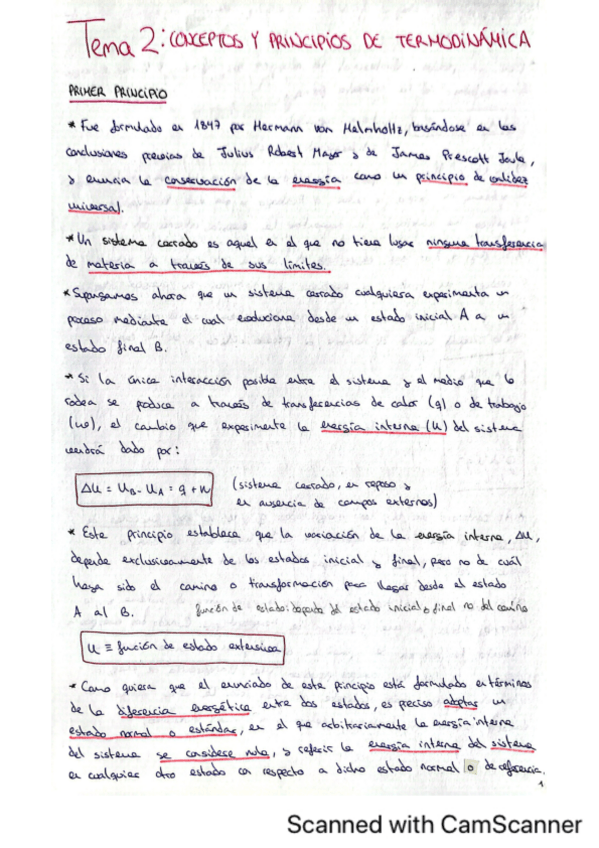 Tema 2: CONCEPTOS Y PRINCIPIOS DE TERMODINÁMICA
PRIMER PRINCIPIO
* Fue formulado en 1847 por Hermann von Helmholtz, basándose en las
conclusiones previas de Julius Robert Mayer y de James Prescott Joule,
y enuncia la conservación de la energía como un principio de validez
universal.
* Un sistema cerrado es aquel en el que no tiene lugar ninguna transferencia
de materia a través de sus límites.
* Supongamos ahora que un sistema cerrado cualquiera experimenta un
proceso mediante el cual evoluciona desde un estado inicial A a un
estado final B.
* Si la única interacción posible entre el sistema y el medio que lo
rodea se produce a través de transferencias de calor (q) o de trabajo
(w), el cambio que experimente la energía interna (U) del sistema
vendrá dado por:
ΔU = UB - UA = q + w (sistema cerrado, en reposo y
en ausencia de campos externos)
* Este principio establece que la variación de la energía interna, ΔU,
depende exclusivamente de los estados inicial y final, pero no de cuál
haya sido el camino o transformación para llegar desde el estado
A al B. función de estado: depende del estado inicial y final no del camino
U ≡ función de estado extensiva
* Como quiera que el enunciado de este principio está formulado en términos
de la diferencia energética entre dos estados, es preciso adoptar un
estado normal o estándar, en el que arbitrariamente la energía interna
del sistema se considere nula, y referir la energía interna del sistema
en cualquier otro estado con respecto a dicho estado normal o de referencia.
1
Scanned with CamScanner